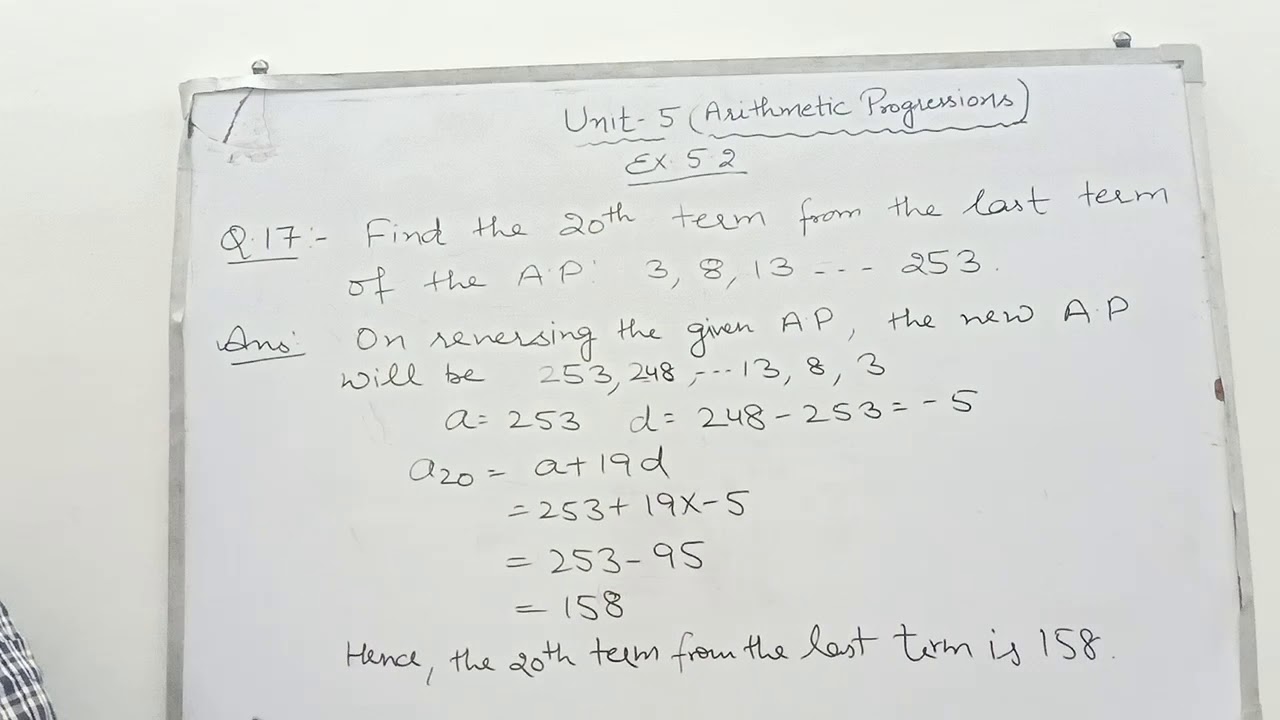 Unit-5 (Arithmetic Progressions)
Ex. 5.2
Q.17:- Find the 20th term from the last term
of the A.P: 3, 8, 13 --- 253.
Ans: On reversing the given A.P, the new A.P
will be 253, 248, --- 13, 8, 3
a = 253 d = 248 - 253 = -5
a20 = a + 19d
= 253 + 19x-5
= 253 - 95
= 158
Hence, the 20th term from the last term is 158.